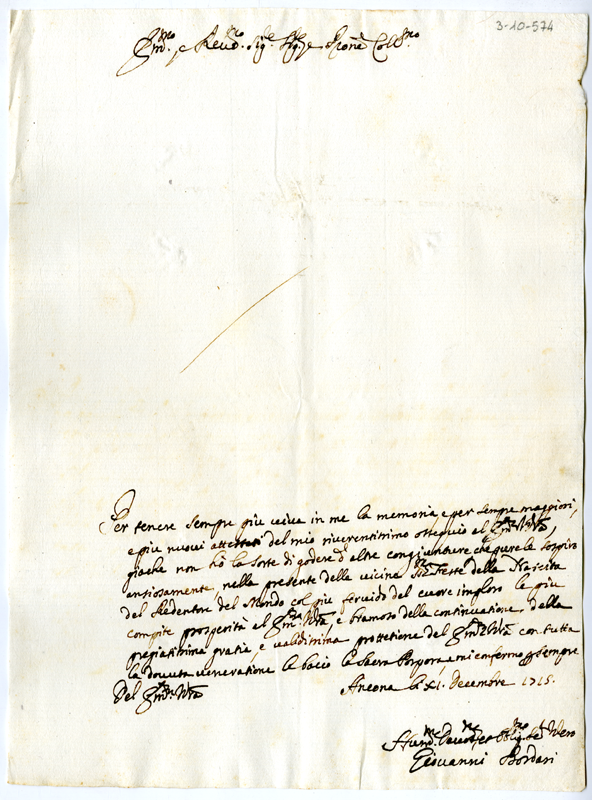 3-10-574
Em.mo e Reud.mo Sig.re Sig.re e Pron̄e Coll.mo
Per tenere sempre più viva in me la memoria e per sempre maggiori,
e più nuovi attestati del mio riverentissimo ossequio al Em.za V̄ra
giache non hò la sorte di godere d'altre congiunture che pure le sospiro
ansiosamente, nella presente della vicina S.me Feste della Nascita
del Redentore del Mondo col più fervido del cuore imploro le più
compite prosperità al Em.za V̄ra, e bramoso della continuatione della
pregiatissima gratia e validissima protettione del Em.za V̄ra con tutta
la dovuta veneratione le bacio la Sacra Porpora, e mi confermo p sempre
Del Em.za V̄ra Ancona li XI. Decembre 1715.
Hum.mo Devot.mo et Obblig.mo Se.r Vero
Giovanni Bordari